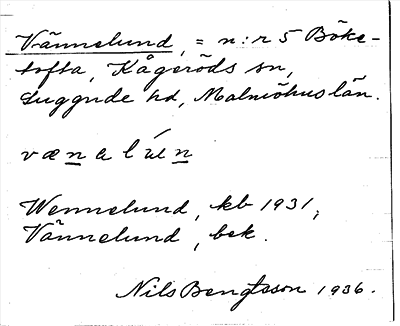 Vännelund, = n:r 5 Böke-
tofta, Kågeröds sn,
Luggude hd, Malmöhus län.
væneluń
Wennelund, kb 1931,
Vännelund, bek.
Nils Bengtsson 1936.